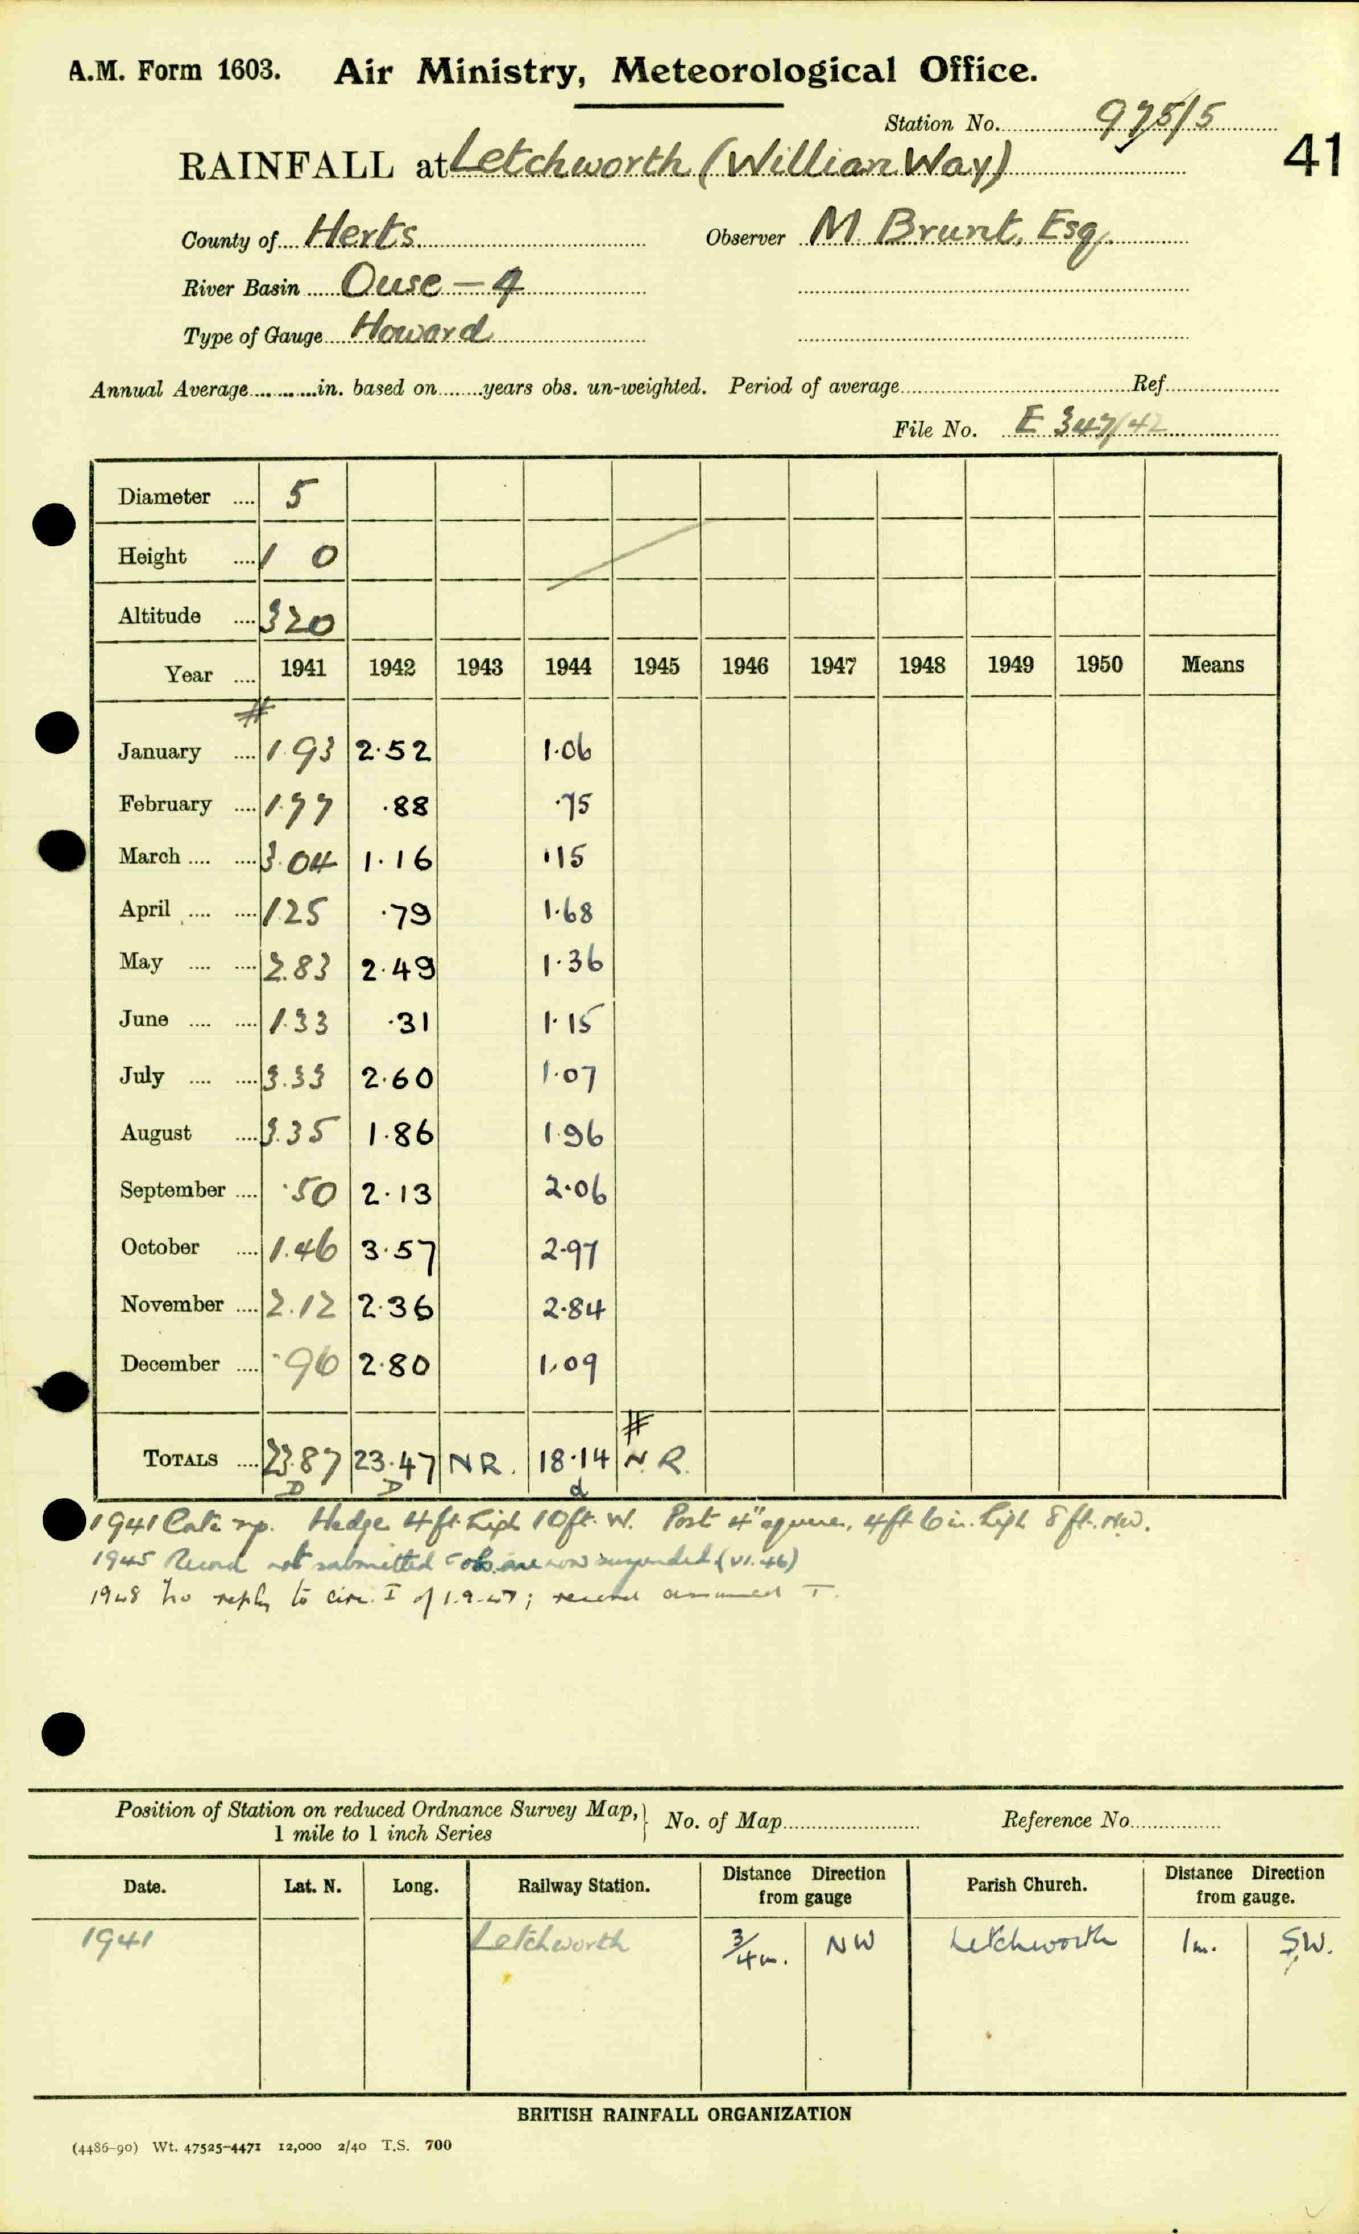 A.M. Form 1603. Air Ministry, Meteorological Office.
Station No. 975/5
RAINFALL at Letchworth (Willian Way) 41
County of Herts Observer M. Brunt, Esq.
River Basin Ouse – 4
Type of Gauge Howard
Annual Average.......in. based on.......years obs. un-weighted. Period of average....... Ref.......
File No. E 347/42
Diameter .... 5
Height .... 1 0
Altitude .... 320
Year .... 1941 1942 1943 1944 1945 1946 1947 1948 1949 1950 Means
#
January .... 1.93 2.52 1.06
February .... 1.77 .88 .75
March .... .... 3.04 1.16 .15
April .... .... 1.25 .79 1.68
May .... .... 2.83 2.49 1.36
June .... .... 1.33 .31 1.15
July .... .... 3.33 2.60 1.07
August .... 3.35 1.86 1.96
September .... .50 2.13 2.06
October .... 1.46 3.57 2.97
November .... 2.12 2.36 2.84
December .... .96 2.80 1.09
#
TOTALS .... 23.87 23.47 N R. 18.14 N. R.
D D d
1941 Hedge 4 ft. high 10 ft. W. Post 4" square, 4 ft 6 in. high 8 ft. NW.
1945 Record not submitted obs. are now suspended (VI.46)
1948 No reply to circ. I of 1.9.47; record assumed T.
Position of Station on reduced Ordnance Survey Map, } No. of Map....... Reference No.......
1 mile to 1 inch Series
Date. Lat. N. Long. Railway Station. Distance Direction from gauge Parish Church. Distance Direction from gauge.
1941 Letchworth 3/4 m. NW Letchworth 1 m. S.W.
BRITISH RAINFALL ORGANIZATION
(4486-90) Wt. 47525-4471 12,000 2/40 T.S. 700